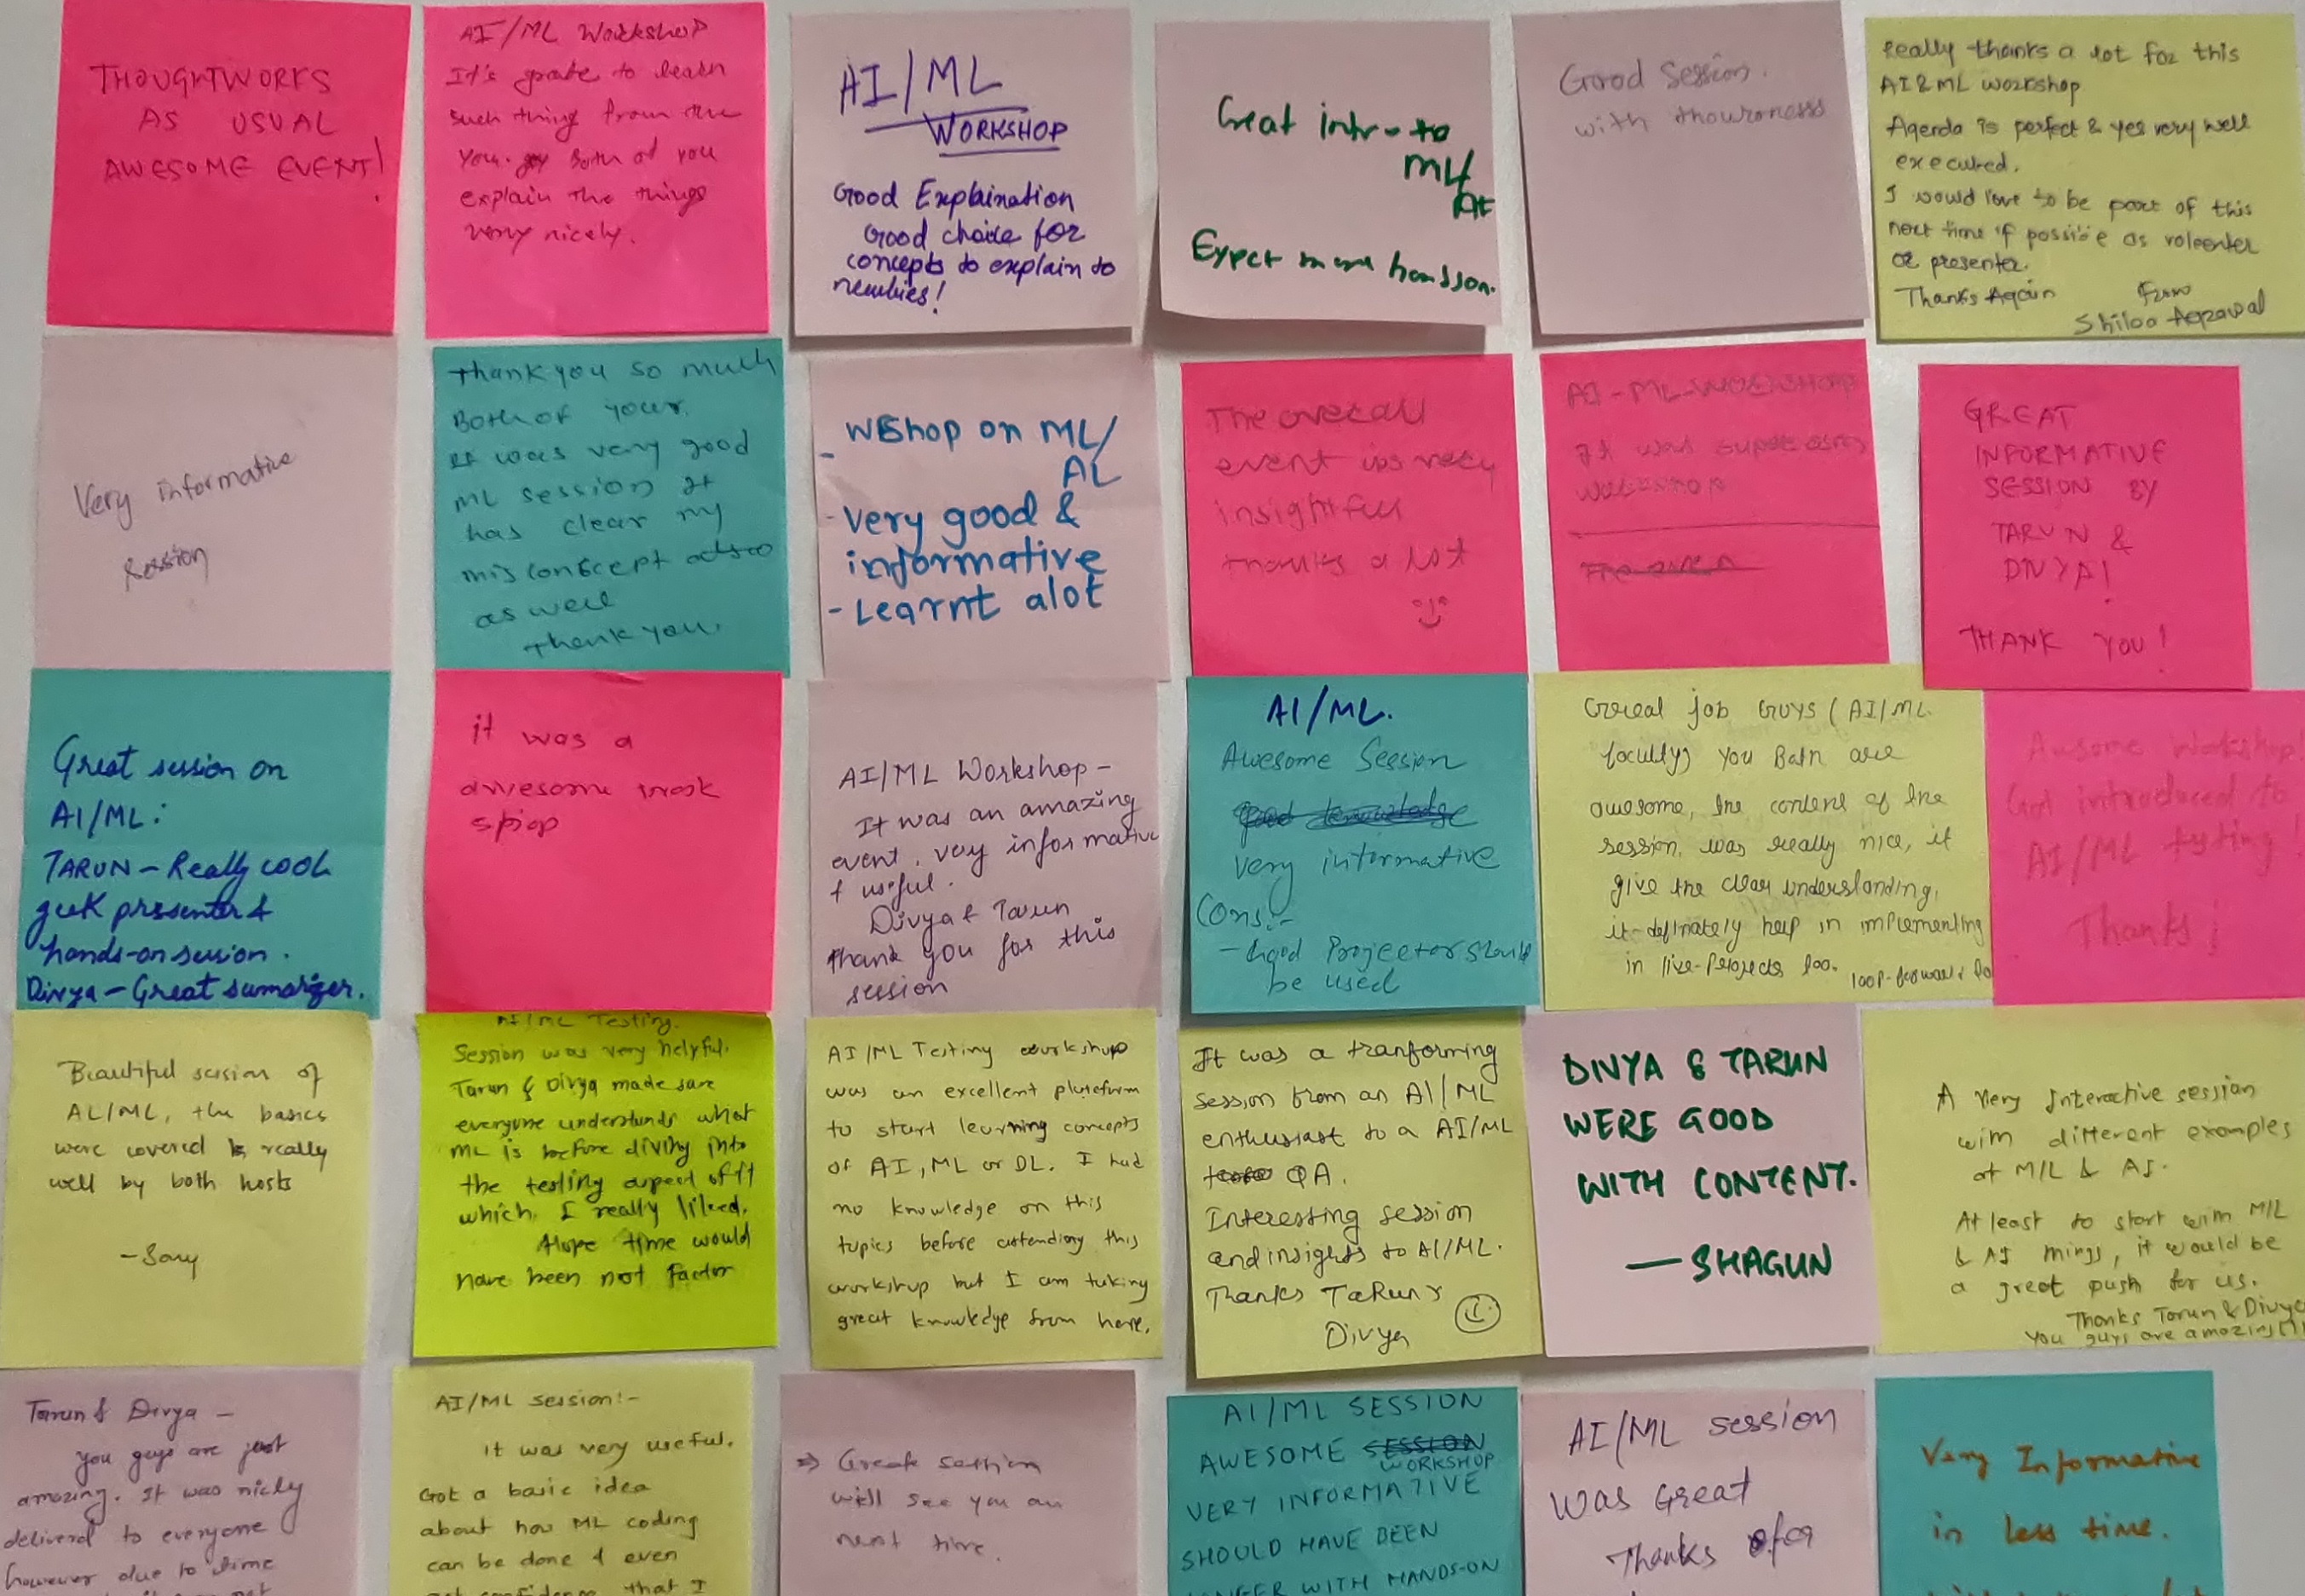 THOUGHTWORKS
AS USUAL
AWESOME EVENT!
AI/ML Workshop
It's grate to learn
such thing from the
you. Both of you
explain the things
very nicely.
AI/ML
WORKSHOP
Good Explaination
Good choice for
concepts to explain to
newbies!
Great intro to
ML/
AI
Expect more handson.
Good Session.
with thouroness
Really thanks a lot for this
AI & ML workshop
Agenda is perfect & yes very well
executed.
I would love to be part of this
next time if possible as voleenter
or presenter.
Thanks Again
From
Shilpa Agrawal
Very informative
session
Thank you so much
Both of your.
It was very good
ML session It
has clear my
misconscept also
as well
Thank you.
- WShop on ML/
AL
- Very good &
informative
- Learnt alot
The overall
event is very
insightful
thanks a lot
AI-ML-WORKSHOP
It was super
workshop
GREAT
INFORMATIVE
SESSION BY
TARUN &
DIVYA!
THANK YOU!
Great session on
AI/ML:
TARUN – Really cool
geek presenter &
hands-on session.
Divya – Great sumarizer.
it was a
awesome work
shop
AI/ML Workshop –
It was an amazing
event. very informative
& useful.
Divya & Tarun
Thank you for this
session
AI/ML.
Awesome Session
good knowledge
very informative
Cons:-
- Good Projector should
be used
Great job Guys (AI/ML
faculty) you Both are
awesome, the content of the
session, was really nice, it
give the clear understanding,
it-definately help in implementing
in live-Projects too. loop-forward to
Awsome Workshop!
Got introduced to
AI/ML testing!
Thanks!
Beautiful session of
AL/ML, the basics
were covered really
well by both hosts
- Sony
AI/ML Testing.
Session was very helpful.
Tarun & Divya made sure
everyone understands what
ML is before diving into
the testing aspect of it
which, I really liked.
Hope time would
have been not factor
AI/ML Testing workshop
was an excellent plateform
to start learning concepts
of AI, ML or DL. I had
no knowledge on this
topics before attending this
workshop but I am taking
great knowledge from here.
It was a tranforming
session from an AI/ML
enthusiast to a AI/ML
QA.
Interesting session
and insights to AI/ML.
Thanks Tarun &
Divya
DIVYA & TARUN
WERE GOOD
WITH CONTENT.
— SHAGUN
A very Interactive session
with different examples
of M/L & AI.
At least to start with M/L
& AI things, it would be
a great push for us.
Thanks Tarun & Divya
You guys are amazing!!
Tarun & Divya –
You guys are just
amazing. It was nicely
deliverd to everyone
however due to time
AI/ML session:-
it was very useful.
Got a basic idea
about how ML coding
can be done & even
got confidence that I
⇒ Great session
will see you on
next time.
AI/ML SESSION
AWESOME SESSION
WORKSHOP
VERY INFORMATIVE
SHOULD HAVE BEEN
LONGER WITH HANDS-ON
AI/ML session
was Great
Thanks for
Very Informative
in less time.